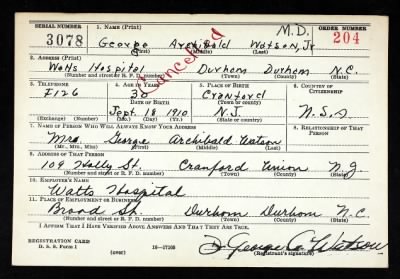 SERIAL NUMBER 1. NAME (Print) M.D. ORDER NUMBER
3078 George Archibald Watson, Jr 204
(First) (Middle) (Last)
Cancelled
2. ADDRESS (Print)
Watts Hospital Durham Durham N.C.
(Number and street or R. F. D. number) (Town) (County) (State)
3. TELEPHONE 4. AGE IN YEARS 5. PLACE OF BIRTH 6. COUNTRY OF CITIZENSHIP
F126 30 Cranford
DATE OF BIRTH (Town or county)
Sept. 18 1910 N.J. U.S.A.
(Exchange) (Number) (Mo.) (Day) (Yr.) (State or country)
7. NAME OF PERSON WHO WILL ALWAYS KNOW YOUR ADDRESS 8. RELATIONSHIP OF THAT PERSON
Mrs. George Archibald Watson
(Mr., Mrs., Miss) (First) (Middle) (Last)
9. ADDRESS OF THAT PERSON
109 Holly St. Cranford Union N.J.
(Number and street or R. F. D. number) (Town) (County) (State)
10. EMPLOYER'S NAME
Watts Hospital
11. PLACE OF EMPLOYMENT OR BUSINESS
Broad St. Durham Durham N.C.
(Number and street or R. F. D. number) (Town) (County) (State)
I AFFIRM THAT I HAVE VERIFIED ABOVE ANSWERS AND THAT THEY ARE TRUE.
REGISTRATION CARD
D. S. S. Form 1 (over) 16-17105 George A. Watson
(Registrant's signature)